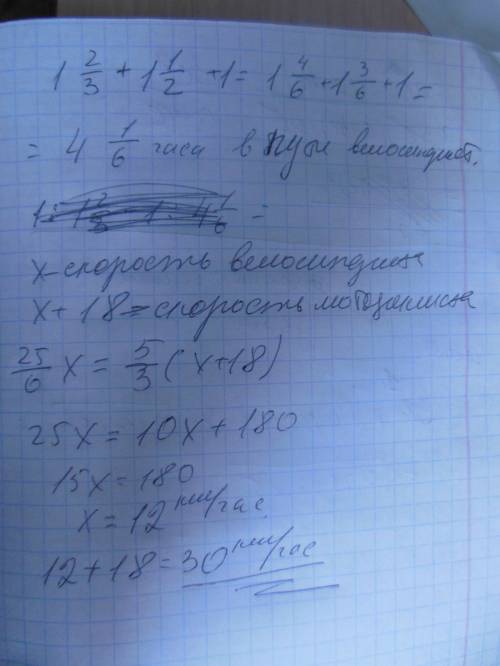 1 2/3 + 1 1/2 + 1 = 1 4/6 + 1 3/6 + 1 =
= 4 1/6 часа в пути велосипедист.
x - скорость велосипедиста
x + 18 = скорость мотоциклиста
25/6 x = 5/3 ( x+18)
25x = 10x + 180
15x = 180
x = 12 км/час
12 + 18 = 30 км/час